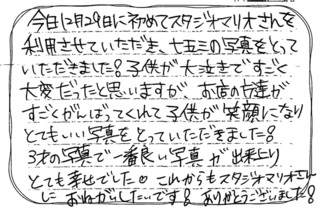 今日12月29日に初めてスタジオマリオさんを
利用させていただき、七五三の写真をとって
いただきました!子供が大泣きですごく
大変だったと思いますが、お店の方達が
すごくがんばってくれて子供が笑顔になり
とてもいい写真をとっていただきました!
3才の写真で一番良い写真が出来上り
とても幸せでした。これからもスタジオマリオさん
におねがいしたいです!ありがとうございました!